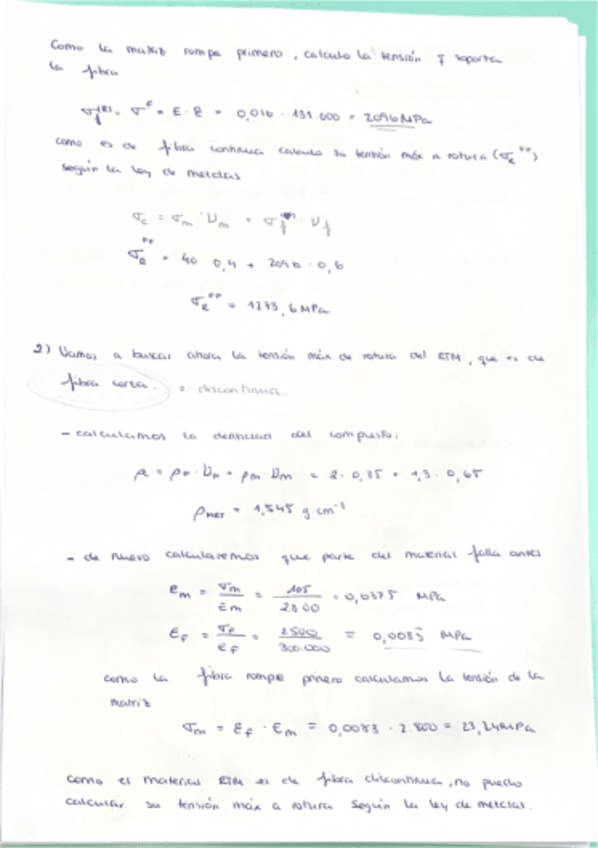 Como la matriz rompe primero, calculo la tensión q soporta
la fibra
σf(R) = σF = E · Ɛ = 0,016 · 131.000 = 2096 MPa
como es de fibra continua calculo su tensión máx a rotura (σc PP)
según la ley de mezclas
σc = σm · Vm + σf · Vf
σc PP = 40 · 0,4 + 2096 · 0,6
σc PP = 1273,6 MPa
2) Vamos a buscar ahora la tensión máx de rotura del RTM, que es de
fibra corta. o discontinua.
- calculamos la densidad del compuesto:
ρc = ρF · VF + ρm · Vm = 2 · 0,35 + 1,3 · 0,65
= 1,545 g·cm⁻³
- de nuevo calcularemos que parte del material falla antes
em = σm / Em = 105 / 2800 = 0,0375 MPa
Ɛf = σf / Ɛf = 2500 / 300.000 = 0,0083 MPa
como la fibra rompe primero calculamos la tensión de la
matriz
σm = Ɛf · Em = 0,0083 · 2.800 = 23,24 MPa
como el material RTM es de fibra discontinua, no puedo
calcular su tensión máx a rotura según la ley de mezclas.